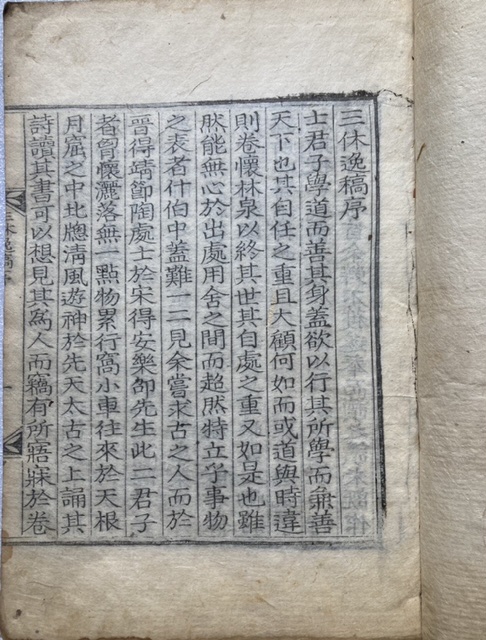 三休逸稿序
士君子學道而善其身盖欲以行其所學而兼善
天下也其自任之重且大顧何如而或道與時違
則卷懷林泉以終其世其自處之重又如是也雖
然能無心於出處用舍之間而超然特立乎事物
之表者什伯中盖難一二見余嘗求古之人而於
晉得靖節陶處士於宋得安樂卲先生此二君子
者胷懷灑落無一點物累行窩小車往來於天根
月窟之中北牕淸風遊神於先天太古之上誦其
詩讀其書可以想見其爲人而竊有所寤寐於卷
逸稿序